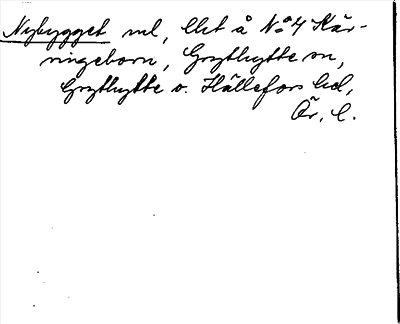 Nybygget ml, Ekt å No 4 Kär-
ningeborn, Grythytte sn,
Grythytte o. Hällefors hd,
Ör. l.